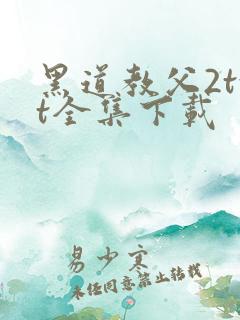 黑道教父2tx
t全集下载
易少寒
未经同意禁止转载